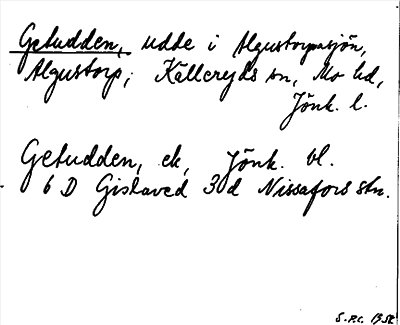 Getudden, udde i Algustorpasjön,
Algustorp, Källeryds sn, Mo hd,
Jönk. l.
Getudden, ek, Jönk. bl.
6 D Gislaved 3d Nissafors stn.